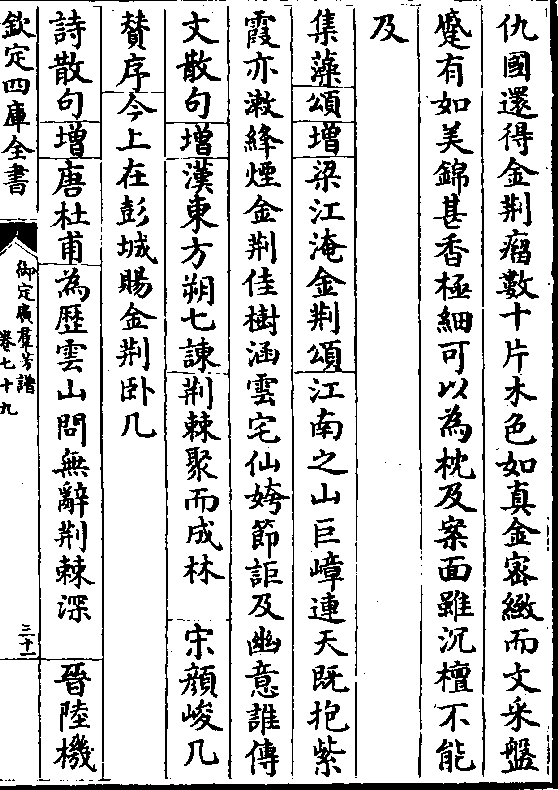 仇國還得金荆瘤數十片木色如真金密緻而文采盤
蹙有如美錦甚香極細可以為枕及案面雖沉檀不能
及
集藻頌增梁江淹金荆頌江南之山巨嶂連天既抱紫
霞亦漱絳煙金荆佳樹涵雲宅仙姱節詎及幽意誰傳
文散句增漢東方朔七諫荆棘聚而成林　宋顔峻几
賛序今上在彭城賜金荆卧几
詩散句增唐杜甫為歴雲山問無辭荆棘深　晉陸機
欽定四庫全書
御定廣羣芳譜
卷七十九
三十一